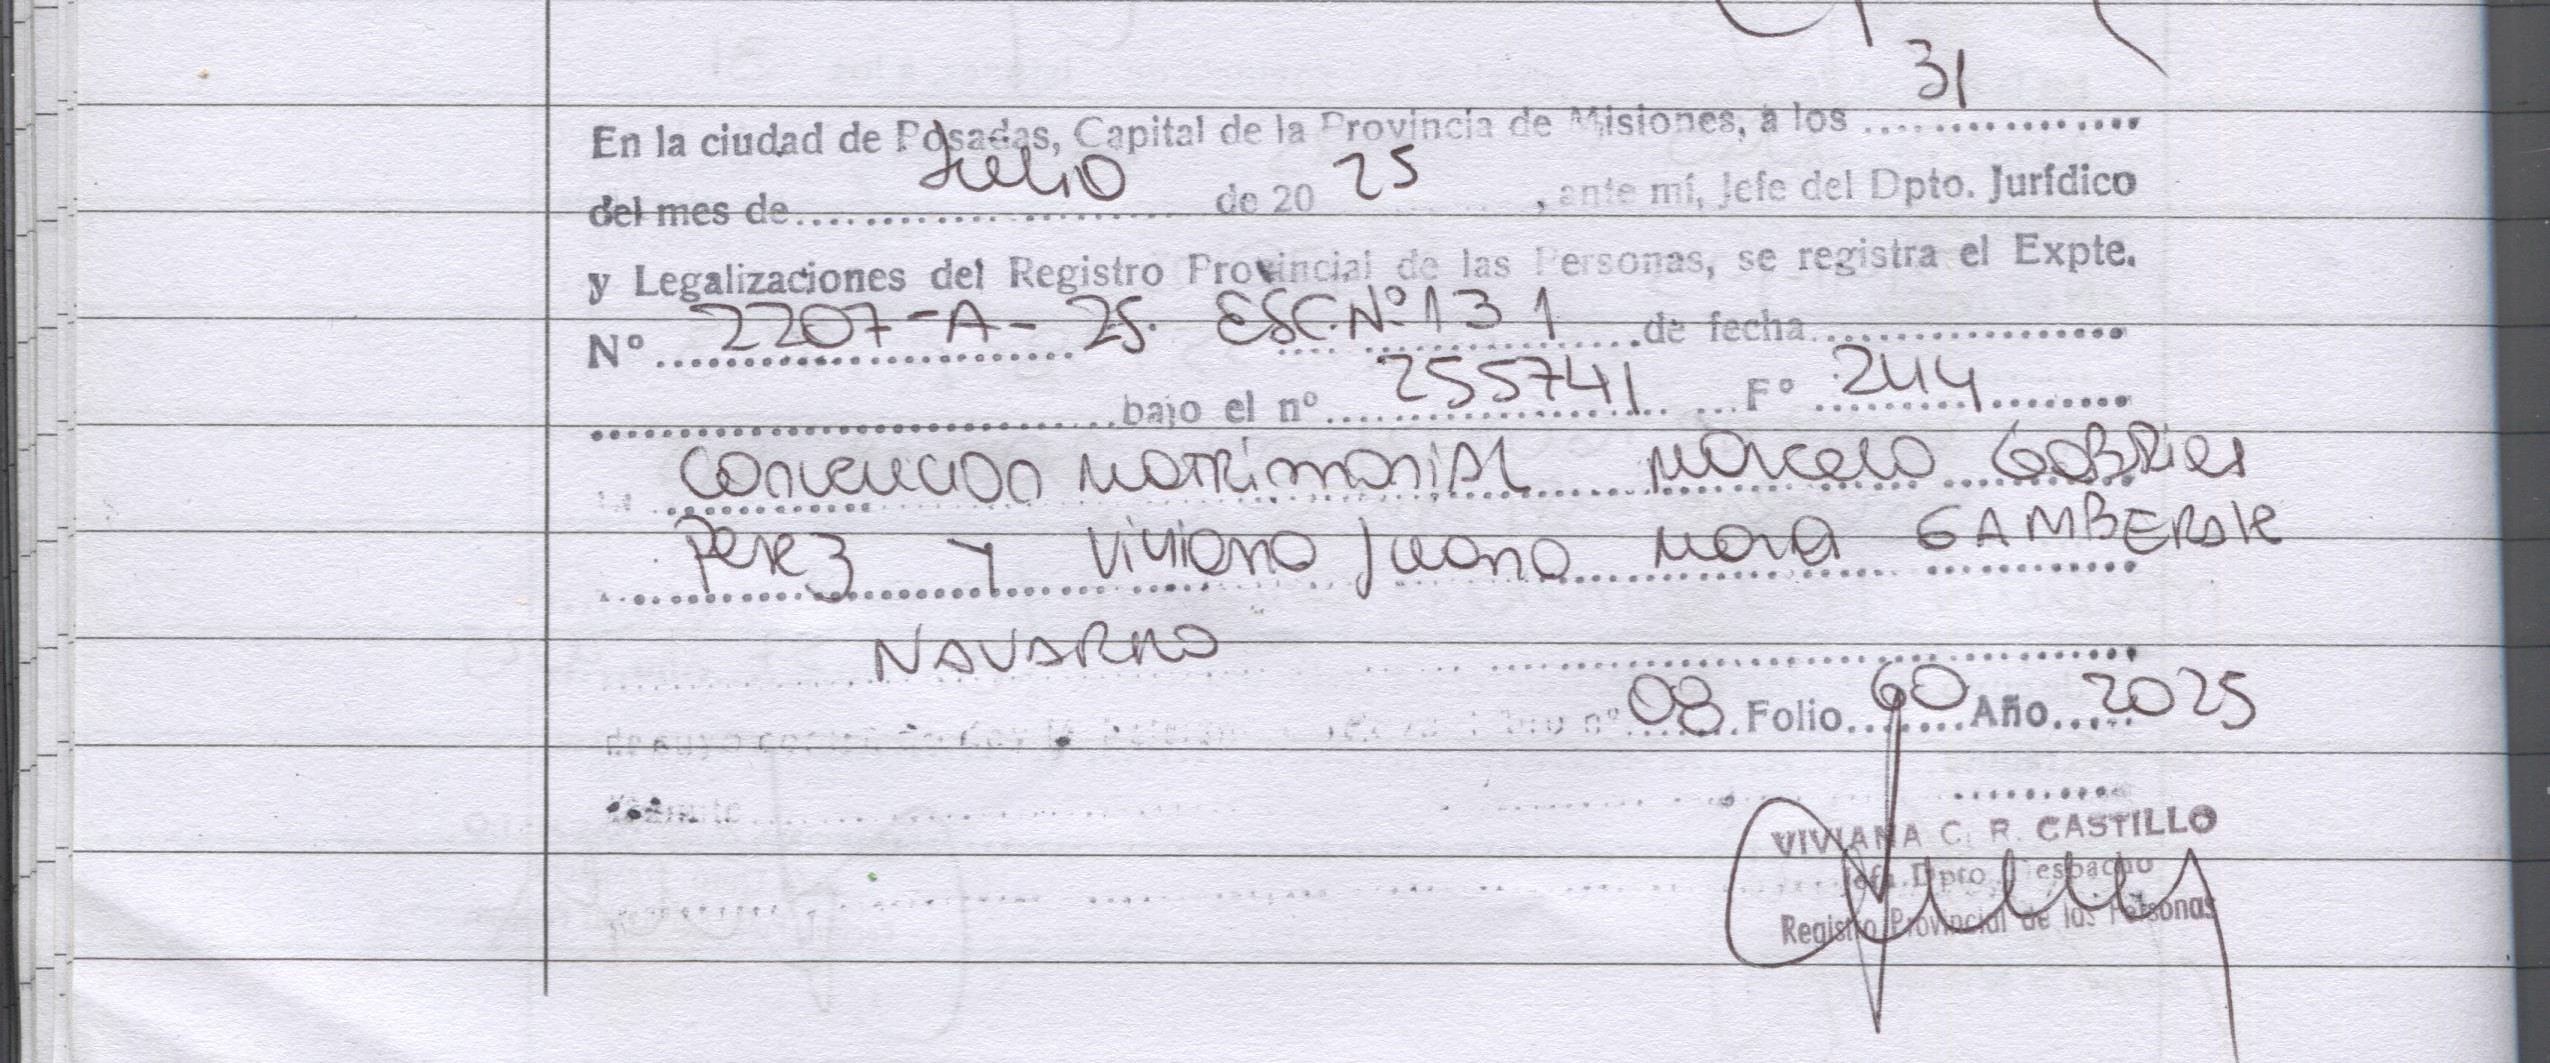 31
En la ciudad de Posadas, Capital de la Provincia de Misiones, a los ................
del mes de........Julio........ de 20 25 , ante mí, Jefe del Dpto. Jurídico
y Legalizaciones del Registro Provincial de las Personas, se registra el Expte.
Nº 2207-A-25. ESC.Nº131 de fecha................
................bajo el nº 255741 Fº 244
Convencion Matrimonial Marcelo Gabriel
Perez y Viviana Juana Mora GAMBERALE
NAVARRO
nº 08 Folio 60 Año 2025
Trámite
VIVIANA C. R. CASTILLO
Jefa Dpto. Despacho
Registro Provincial de las Personas